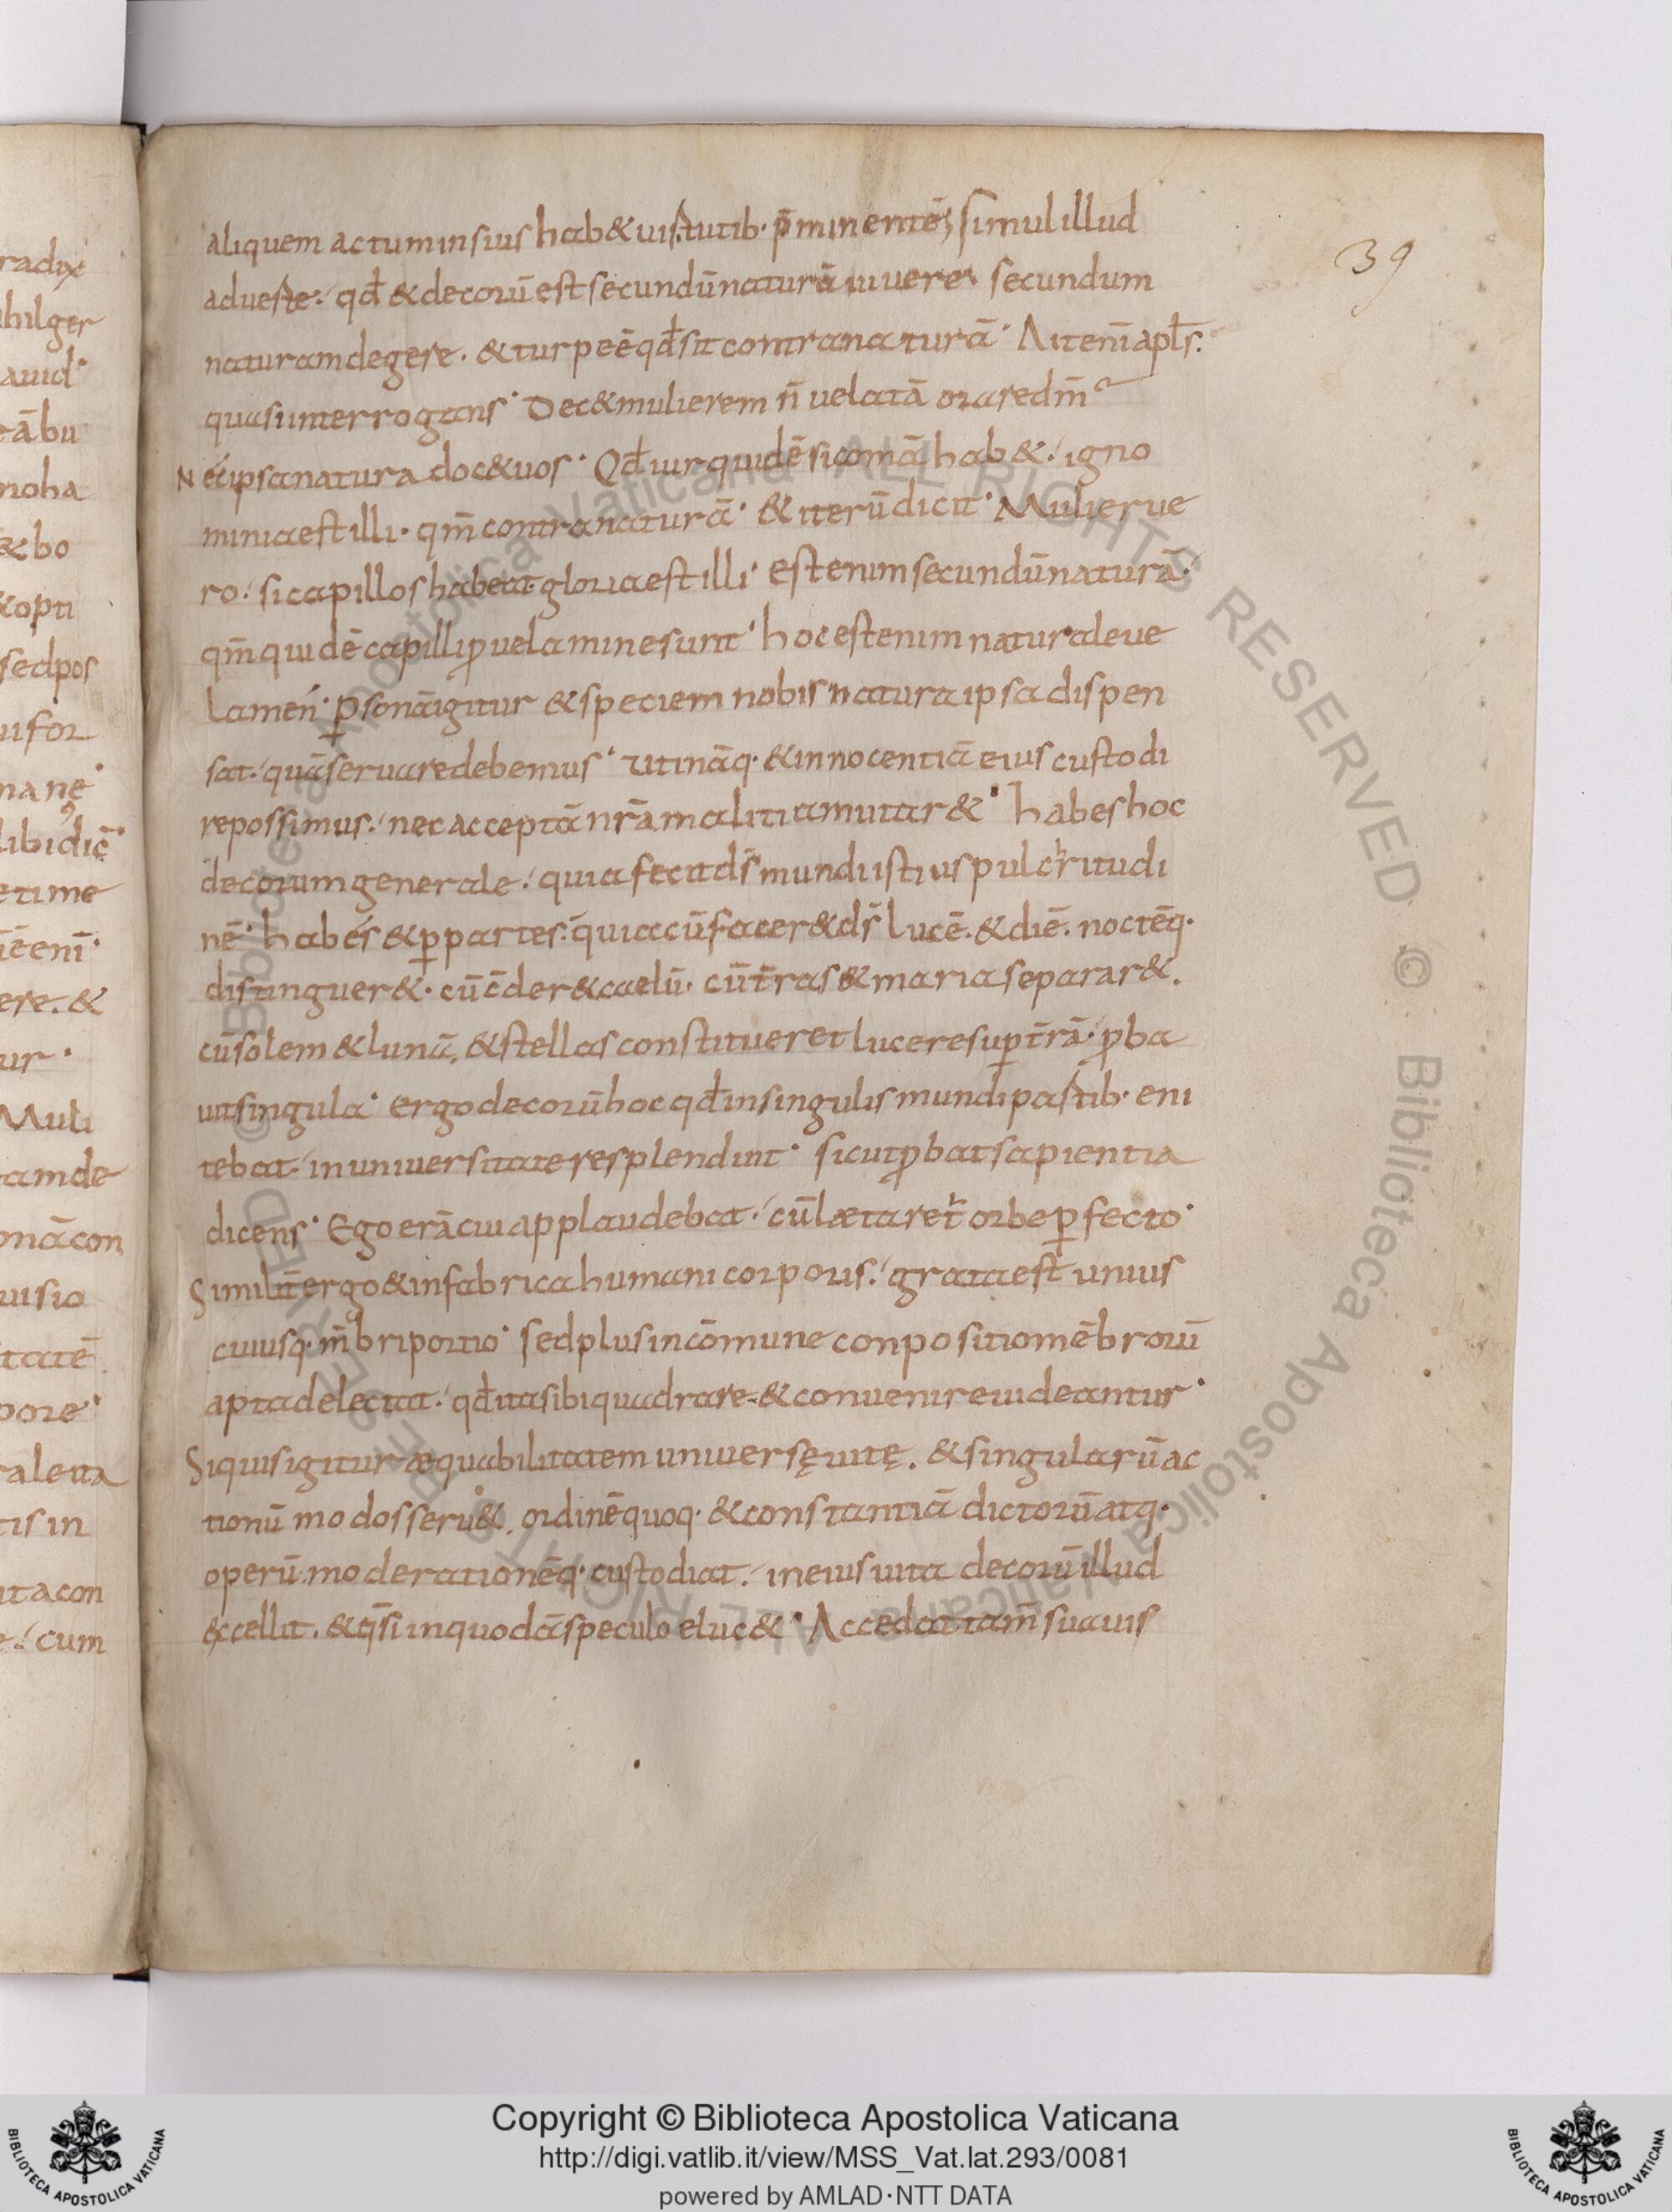 39
aliquem actum insius hab& uirtutib· p̄minentē; simul illud
adueste·/ qđ & decorū est secundū naturā uiuere· secundum
naturam degere. & turpe ē qđ sit contra naturā· Ait enī apl̄s·
quasi interrogans· Dec& mulierem n̄ velatā orare dm̄
Nec ipsa natura doc& uos· Qđ uir quidē si comā hab&·/ igno
minia est illi· qm̄ contra naturā· & iterū dicit· Mulier ue
ro·/ si capillos habeat gloria est illi· est enim secundū naturā·
qm̄ quidē capilli ꝓ uelamine sunt· hoc est enim natura de ue
lamen· ꝑsonā igitur & speciem nobis natura ipsa dispen
sat·/ quā seruare debemus· utināq· & innocentiā eius custodi
re possimus·/ nec acceptā nr̄a malitia mutar&· habes hoc
decorum generale·/ quia fecit ds̄ mundi istius pulchritudi
nē· habes & ꝑ partes·/ quia cū facer& ds̄ lucē· & diē· noctēq·
distinguer&· cū c̄der& caelū· cū t̄ras & maria separar&.
cū solem & lunā, & stellas constitueret lucere suꝑ t̄rā· ꝓba
uit singula· ergo decorū hoc qđ in singulis mundi partib· eni
tebat·/ in uniuersitate resplendint· sicut ꝓbat sapientia
dicens· Ego erā cui applaudebat·/ cū laetaret̄ orbe ꝑfecto·
Similit̄ ergo & in fabrica humani corporis·/ grata est unius
cuiusq· m̄bri portio· sed plus in cōmune conpositio mēbrorū
apta delectat·/ qđ ita sibi quadrare & conuenire uideantur·
Si quis igitur aequabilitatem uniuersę uitę. & singularū ac
tionū modos seru&, ordinē quoq· & constantiā dictorū atq·
operū moderationēq· custodiat·/ in eius uita decorū illud
excellit. & q̄si in quodā speculo eluc&· Accedat tam̄ suauis
radix
hilger
auid·
ā bu
noha
& bo
&opti
sed pos
uifor
na nę·
libidic̄·
etime
ē enī·
ere. &
ur·
Muli
amde
onā con
uisio
tatē
pore·
aleta
tis in
ita con
e·/ cum
© Biblioteca Apostolica Vaticana ALL RIGHTS RESERVED © Biblioteca Apostolica Vaticana ALL RIGHTS RESERVED
Copyright © Biblioteca Apostolica Vaticana
http://digi.vatlib.it/view/MSS_Vat.lat.293/0081
powered by AMLAD·NTT DATA
BIBLIOTECA APOSTOLICA VATICANA
BIBLIOTECA APOSTOLICA VATICANA